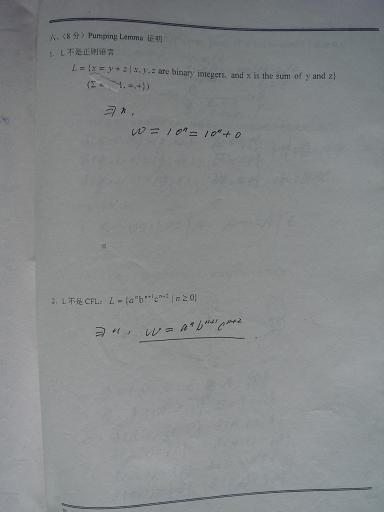 六、(8分) Pumping Lemma 证明
1. L不是正则语言
L = {x = y + z | x, y, z are binary integers, and x is the sum of y and z}
1, =, +})
∃ n,
W = 10ⁿ = 10ⁿ + 0
2. L不是CFL: L = {aⁿbⁿ⁺¹cⁿ⁺² | n ≥ 0}
∃ n, W = aⁿbⁿ⁺¹cⁿ⁺²